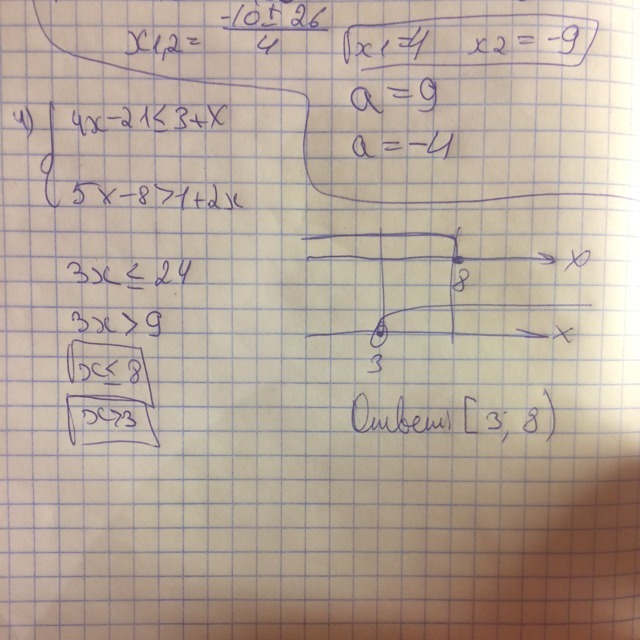 x1,2 = (-10 ± 26)/4
x1=4 x2 = -9
a = 9
a = -4
4)
4x-21≤3+x
5x-8>1+2x
3x ≤ 24
3x > 9
x≤8
x>3
8 x
3 x
Ответ: [3; 8)